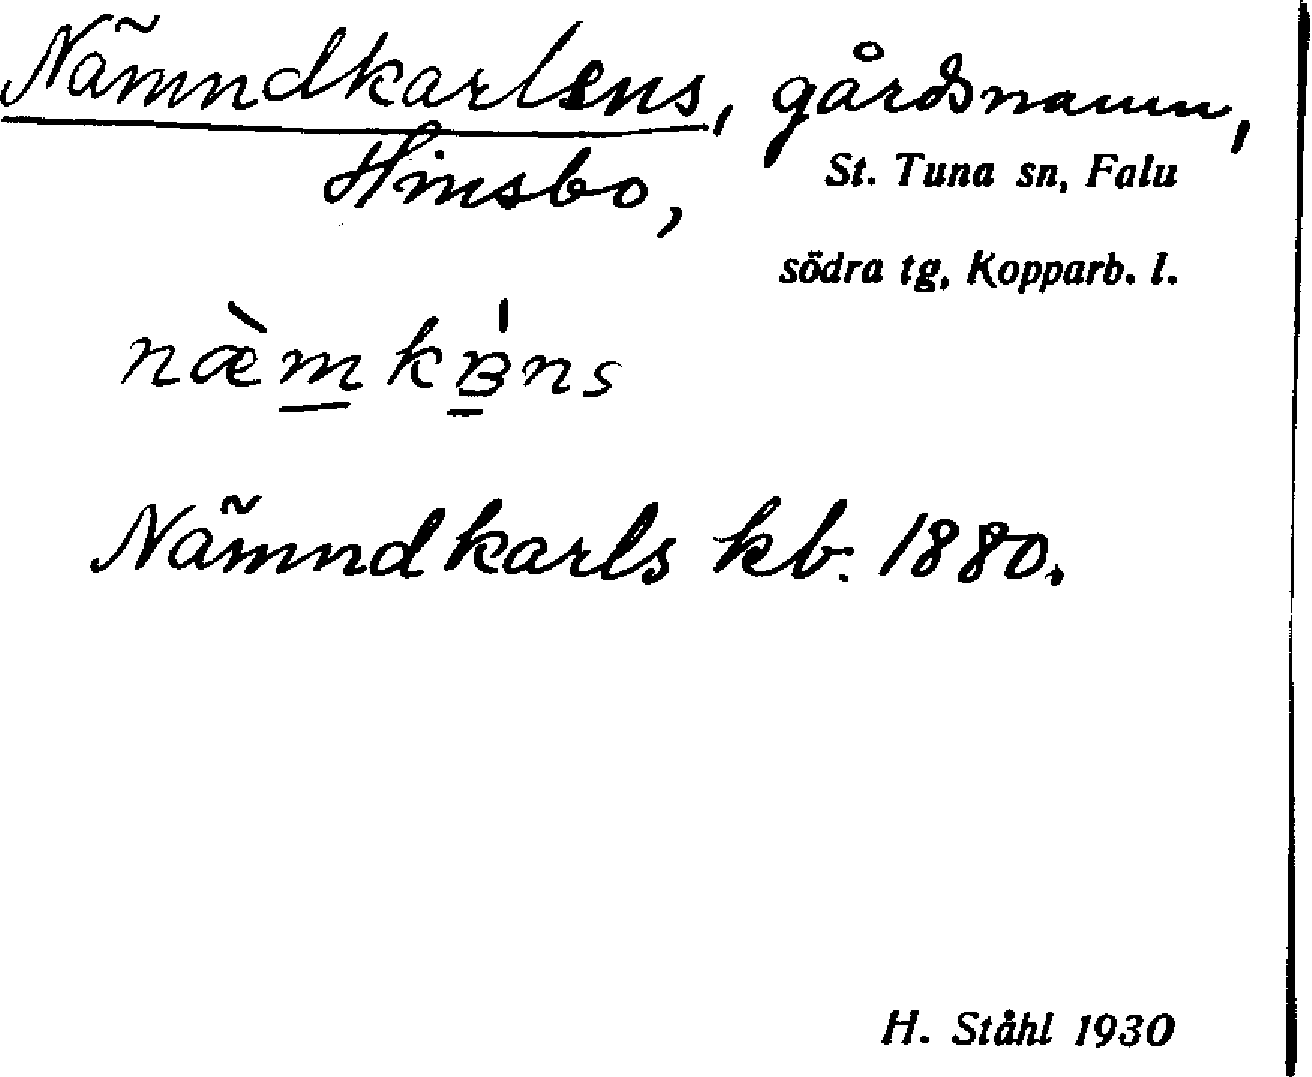 Nämndkarlens, gårdsnamn,
Hinsbo,
St. Tuna sn, Falu
södra tg, Kopparb. l.
Nämndkarls kb. 1880.
H. Ståhl 1930